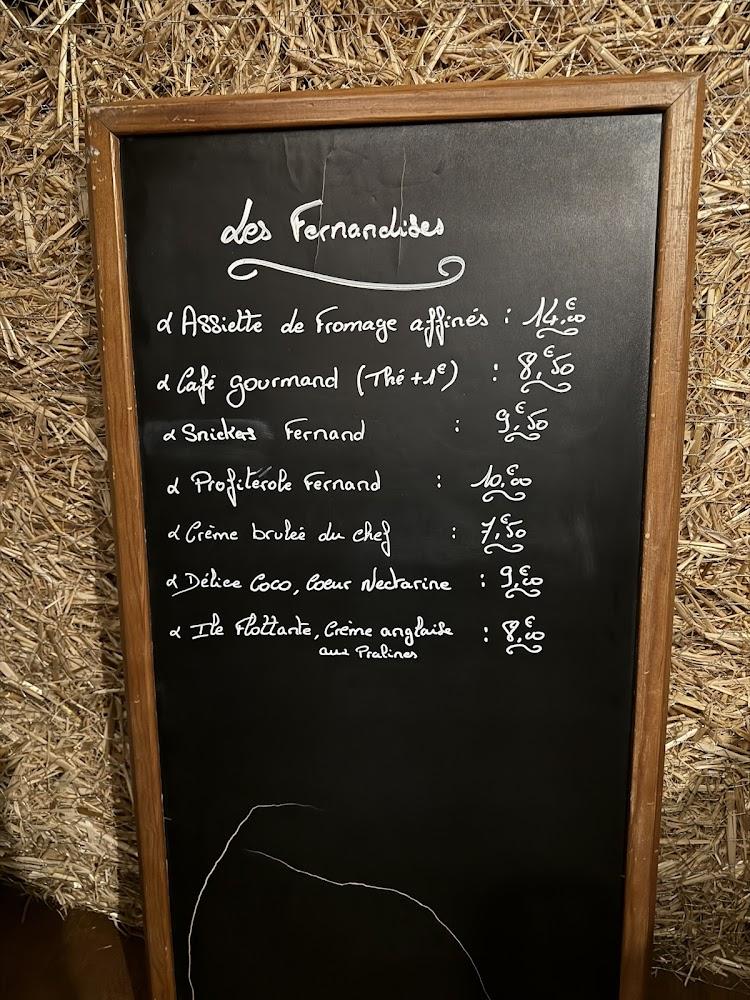 Les Fernandises
Assiette de Fromage affinés : 14,€00
Café gourmand (Thé +1€) : 8,€50
Snickers Fernand : 9,€50
Profiterole Fernand : 10,€00
Crème brulée du chef : 7,€50
Délice Coco, Coeur Nectarine : 9,€00
Ile Flottante, Crème anglaise : 8,€00
aux Pralines